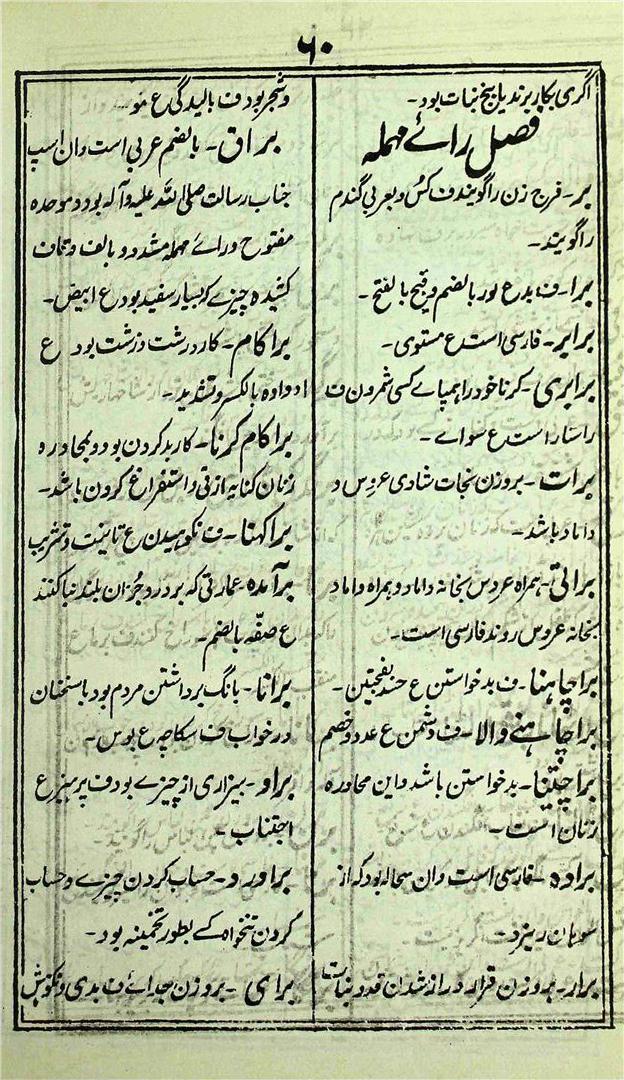 ۶۰
اگری بکار برند یا بیخ نبات بود۔
فصل رائے مہملہ
بر۔ فرج زن را گویند ف کس و بعربی گندم
را گویند۔
برا۔ ف بد ع ور بالضم و قبح بالفتح۔
برابر۔ فارسی است ع مستوی۔
برابری۔ کرنا خود را ہمپاے کسی شمردن ف
راستارا است ع سواے۔
برات۔ بروزن نجات شادی عروس و
داماد باشد۔
براتی۔ ہمراہ عروس بخانہ داماد و ہمراہ داماد
بخانہ عروس روند فارسی است۔
برا چاہنا۔ ف بد خواستن ع حسد بفتحتین۔
برا چاہنے والا۔ ف دشمن ع عدو و خصم
برا چیتنا۔ بد خواستن باشد و این محاورہ
زنان است۔
برادہ۔ فارسی است وان سحالہ بود کہ از
سوہان ریزد۔
برار۔ بروزن قرار دراز شدن قد و نبات
و شجر بود ف بالیدگی ع نمو
براق۔ بالضم عربی است وان اسپ
جناب رسالت صلی اللہ علیہ و آلہ بود و موحدہ
مفتوح و راے مہملہ مشدد و بالف و قاف
کشیدہ چیزے کہ بسیار سفید بود ع ابیض۔
برا کام۔ کار درشت و زشت بود ع
ادوادہ بالکسر و تشدید۔
برا کام کرنا۔ کار بد کردن بود و بمحاورہ
زنان کنایہ از قی و استفراغ کردن باشد۔
برا کہنا۔ ف نکوہیدن ع تانیث و تثریب
برآمدہ۔ عمارتی کہ بر در و جز ان بلند بنا کنند
ع صفّہ بالضم۔
برانا۔ بانگ برداشتن مردم بود با سخنان
در خواب ف سکاچہ ع بوس۔
براو۔ بیزاری از چیزے بود ف پرہیز ع
اجتناب۔
براورد۔ حساب کردن چیزے و حساب
کردن تنخواہ کے بطور تخمینہ بود۔
برای۔ بروزن جدائے ف بدی و نکوہش